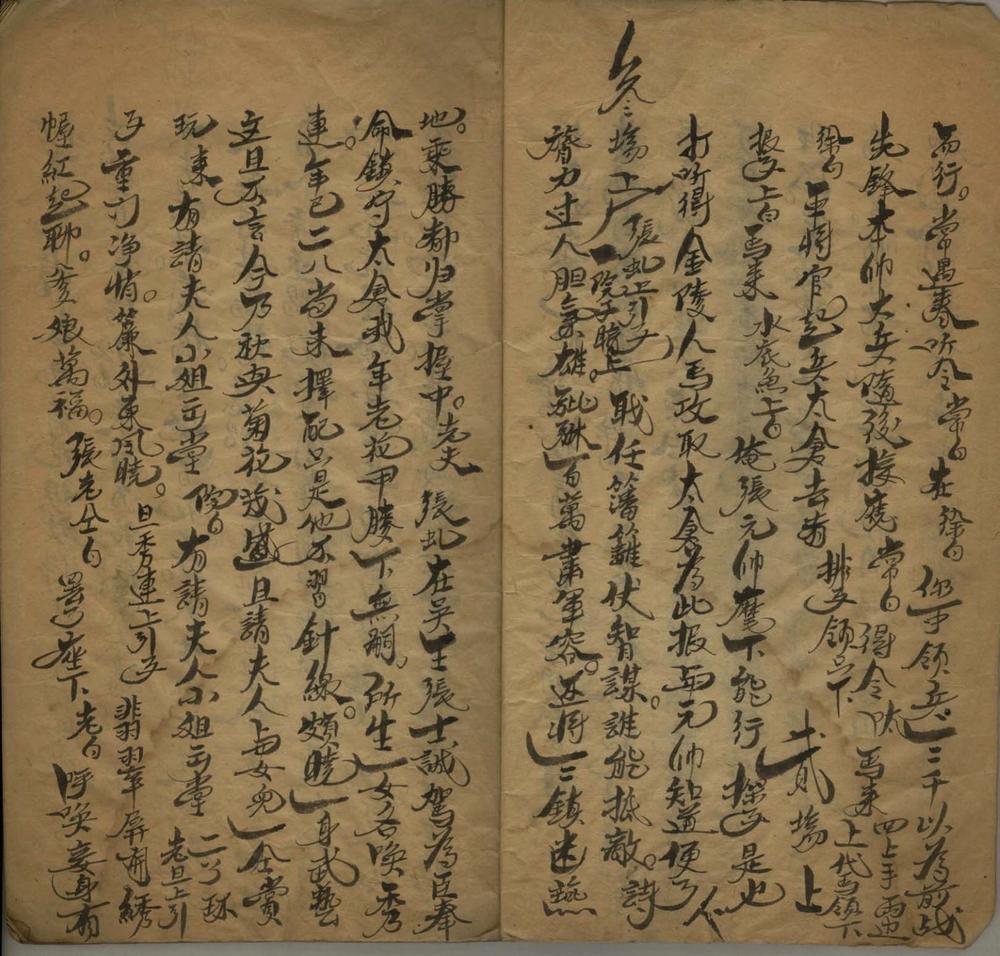 而行。常遇春听令常白在徐白你可領兵三千以為前战
先鋒本帅大兵隨後接應常白得令吠馬来四上手両边上代馬領下
徐白軍將官起兵太倉去者排子領兵下
貳場上
报子上白馬来水底魚上白俺張元帅麾下能行探子是也
打听得金陵人馬攻取太倉為此报與元帅知道便了
叁場上
張虬上引子
職任藩籬伏智謀。誰能抵敵。詩
膂力过人胆氣雄。貔貅百萬肅軍容。还將三鎮迷燕
地。乘勝都归掌握中。老夫張虬在吳王張士誠駕為臣奉
命鎮守太倉我年老抱甲膝下無嗣。所生一女名喚秀
連。年已二八尚未擇配只是他不習針線頗曉一身武藝
文且不言今乃秋央菊花茂盛且請夫人與女兒一仝賞
玩来有請夫人小姐出堂院白有請夫人小姐出堂老旦上引
子重门净悄。簾外東风曉。旦秀連上引子翡翠屏開綉
幄紅起聊。爹娘萬福。張老仝白罢了座下老白呼喚妾身有